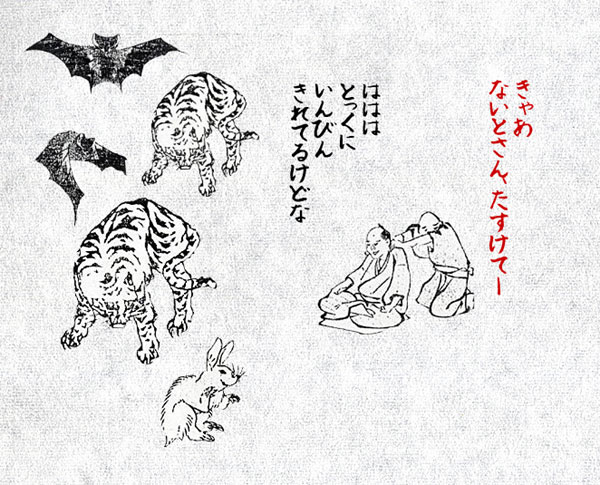 きゃあ
ないとさん、たすけてー
ははは
とっくに
いんびん
きれてるけどな